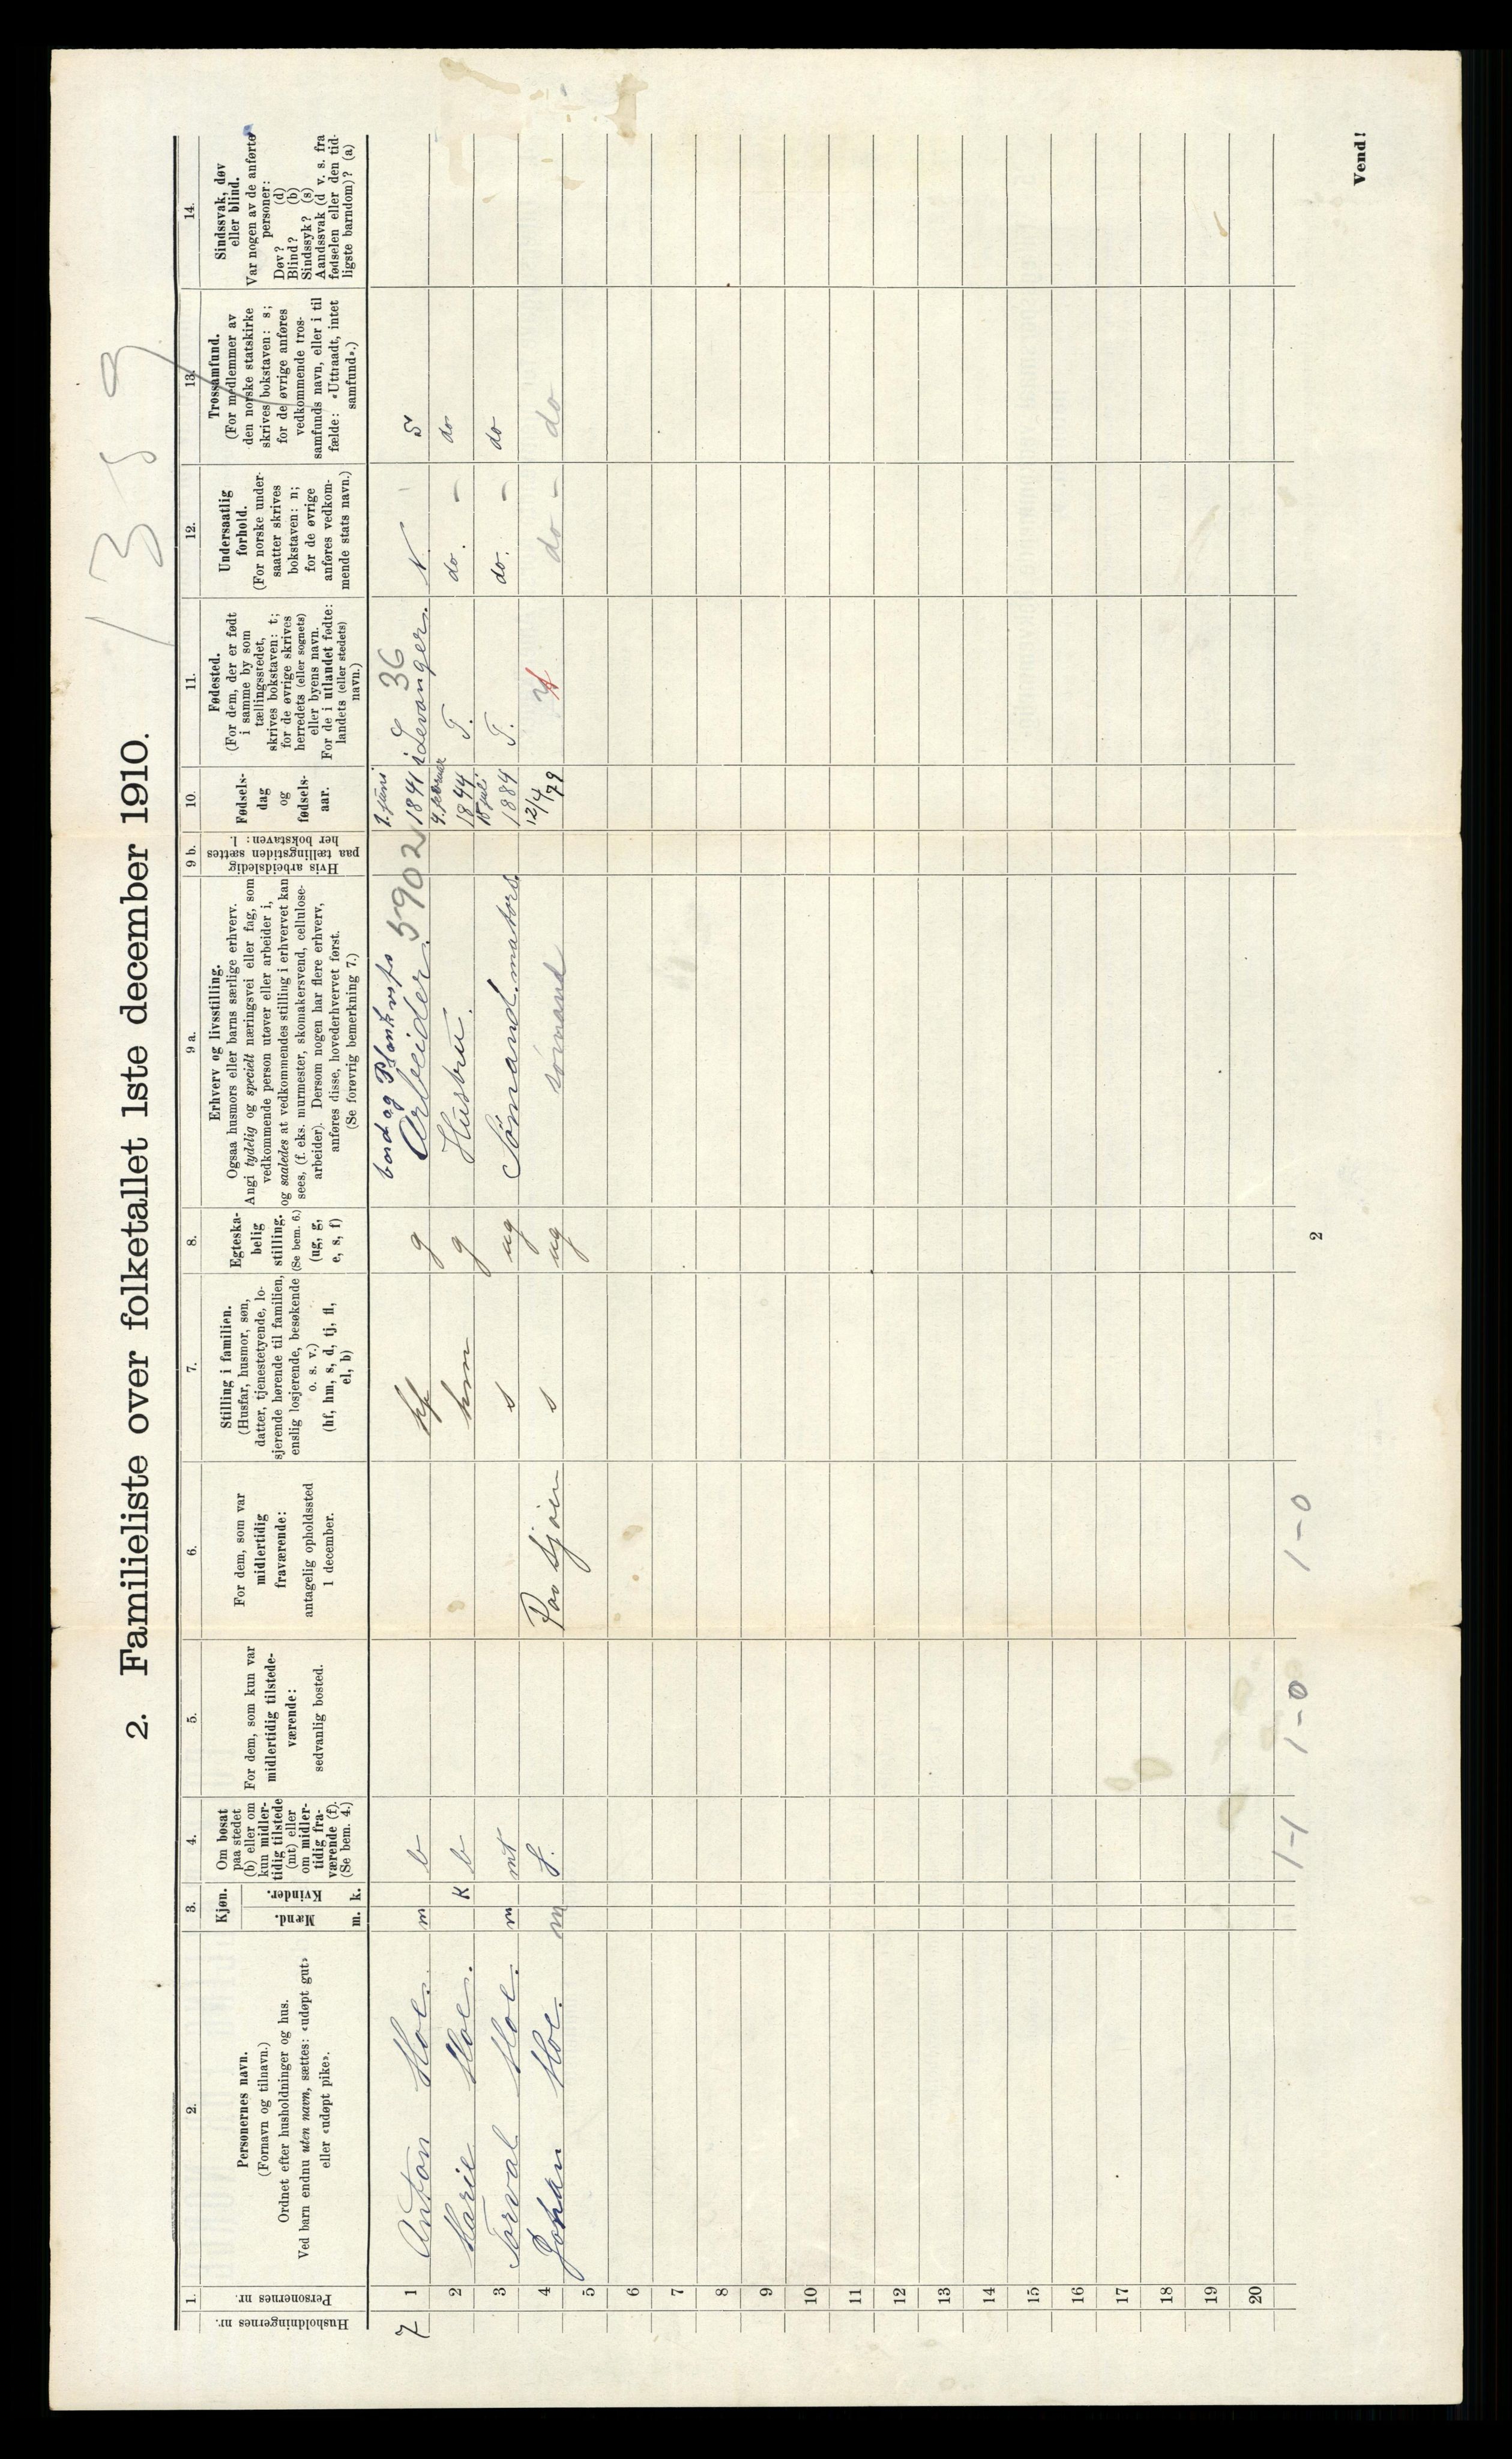 1359
2. Familieliste over folketallet 1ste december 1910.
Husholdningernes nr.
1.
Personernes nr.
2.
Personernes navn.
(Fornavn og tilnavn.)
Ordnet efter husholdninger og hus.
Ved barn endnu uten navn, sættes: «udøpt gut»
eller «udøpt pike».
3.
Kjøn.
Mænd.
Kvinder.
m. k.
4.
Om bosat
paa stedet
(b) eller om
kun midler-
tidig tilstede
(mt) eller
om midler-
tidig fra-
værende (f).
(Se bem. 4.)
5.
For dem, som kun var
midlertidig tilstede-
værende:
sedvanlig bosted.
6.
For dem, som var
midlertidig
fraværende:
antagelig opholdssted
1 december.
7.
Stilling i familien.
(Husfar, husmor, søn,
datter, tjenestetyende, lo-
sjerende hørende til familien,
enslig losjerende, besøkende
o. s. v.)
(hf, hm, s, d, tj, fl,
el, b)
8.
Egteska-
belig
stilling.
(Se bem. 6.)
(ug, g,
e, s, f)
9 a.
Erhverv og livsstilling.
Ogsaa husmors eller barns særlige erhverv.
Angi tydelig og specielt næringsvei eller fag, som
vedkommende person utøver eller arbeider i,
og saaledes at vedkommendes stilling i erhvervet kan
sees, (f. eks. murmester, skomakersvend, cellulose-
arbeider). Dersom nogen har flere erhverv,
anføres disse, hovederhvervet først.
(Se forøvrig bemerkning 7.)
9 b.
Hvis arbeidsledig
paa tællingstiden sættes
her bokstaven: l.
10.
Fødsels-
dag
og
fødsels-
aar.
11.
Fødested.
(For dem, der er født
i samme by som
tællingsstedet,
skrives bokstaven: t;
for de øvrige skrives
herredets (eller sognets)
eller byens navn.
For de i utlandet fødte:
landets (eller stedets)
navn.)
12.
Undersaatlig
forhold.
(For norske under-
saatter skrives
bokstaven: n;
for de øvrige
anføres vedkom-
mende stats navn.)
13.
Trossamfund.
(For medlemmer av
den norske statskirke
skrives bokstaven: s;
for de øvrige anføres
vedkommende tros-
samfunds navn, eller i til
fælde: «Uttraadt, intet
samfund».)
14.
Sindssvak, døv
eller blind.
Var nogen av de anførte
personer:
Døv? (d)
Blind? (b)
Sindssyk? (s)
Aandssvak (d v. s. fra
fødselen eller den tid-
ligste barndom)? (a)
bord og 2. juni 36
7 1 Anton Moe. m b hf g Arbeider. 5902 1841 idevanger. N. S
4. februar
2 Marie Moe. k b hm g Husbru. 1844 T. do. – do
15 juli
3 Torval Moe. m mt s ug Sömand. matros. 1884 T. do. – do
4 Johan Moe. m f. Paa Sjøen s ug sömand 12/4 79 do – do
5
6
7
8
9
10
11
12
13
14
15
16
17
18
19
20
1–1 1–0 1–0
2
Vend!